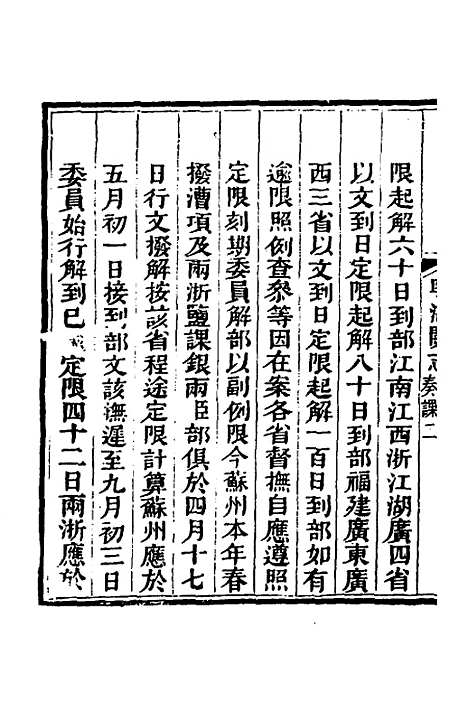 奏課二
限起解六十日到部江南江西浙江湖廣四省
以文到日定限起解八十日到部福建廣東廣
西三省以文到日定限起解一百日到部如有
逾限照例查參等因在案各省督撫自應遵照
定限刻期委員解部以副例限今蘇州本年春
撥漕項及兩浙鹽課銀兩臣部俱於四月十七
日行文撥解按該省程途定限計算蘇州應於
五月初一日接到部文該撫遲至九月初三日
委員始行解到已定限四十二日兩浙應於